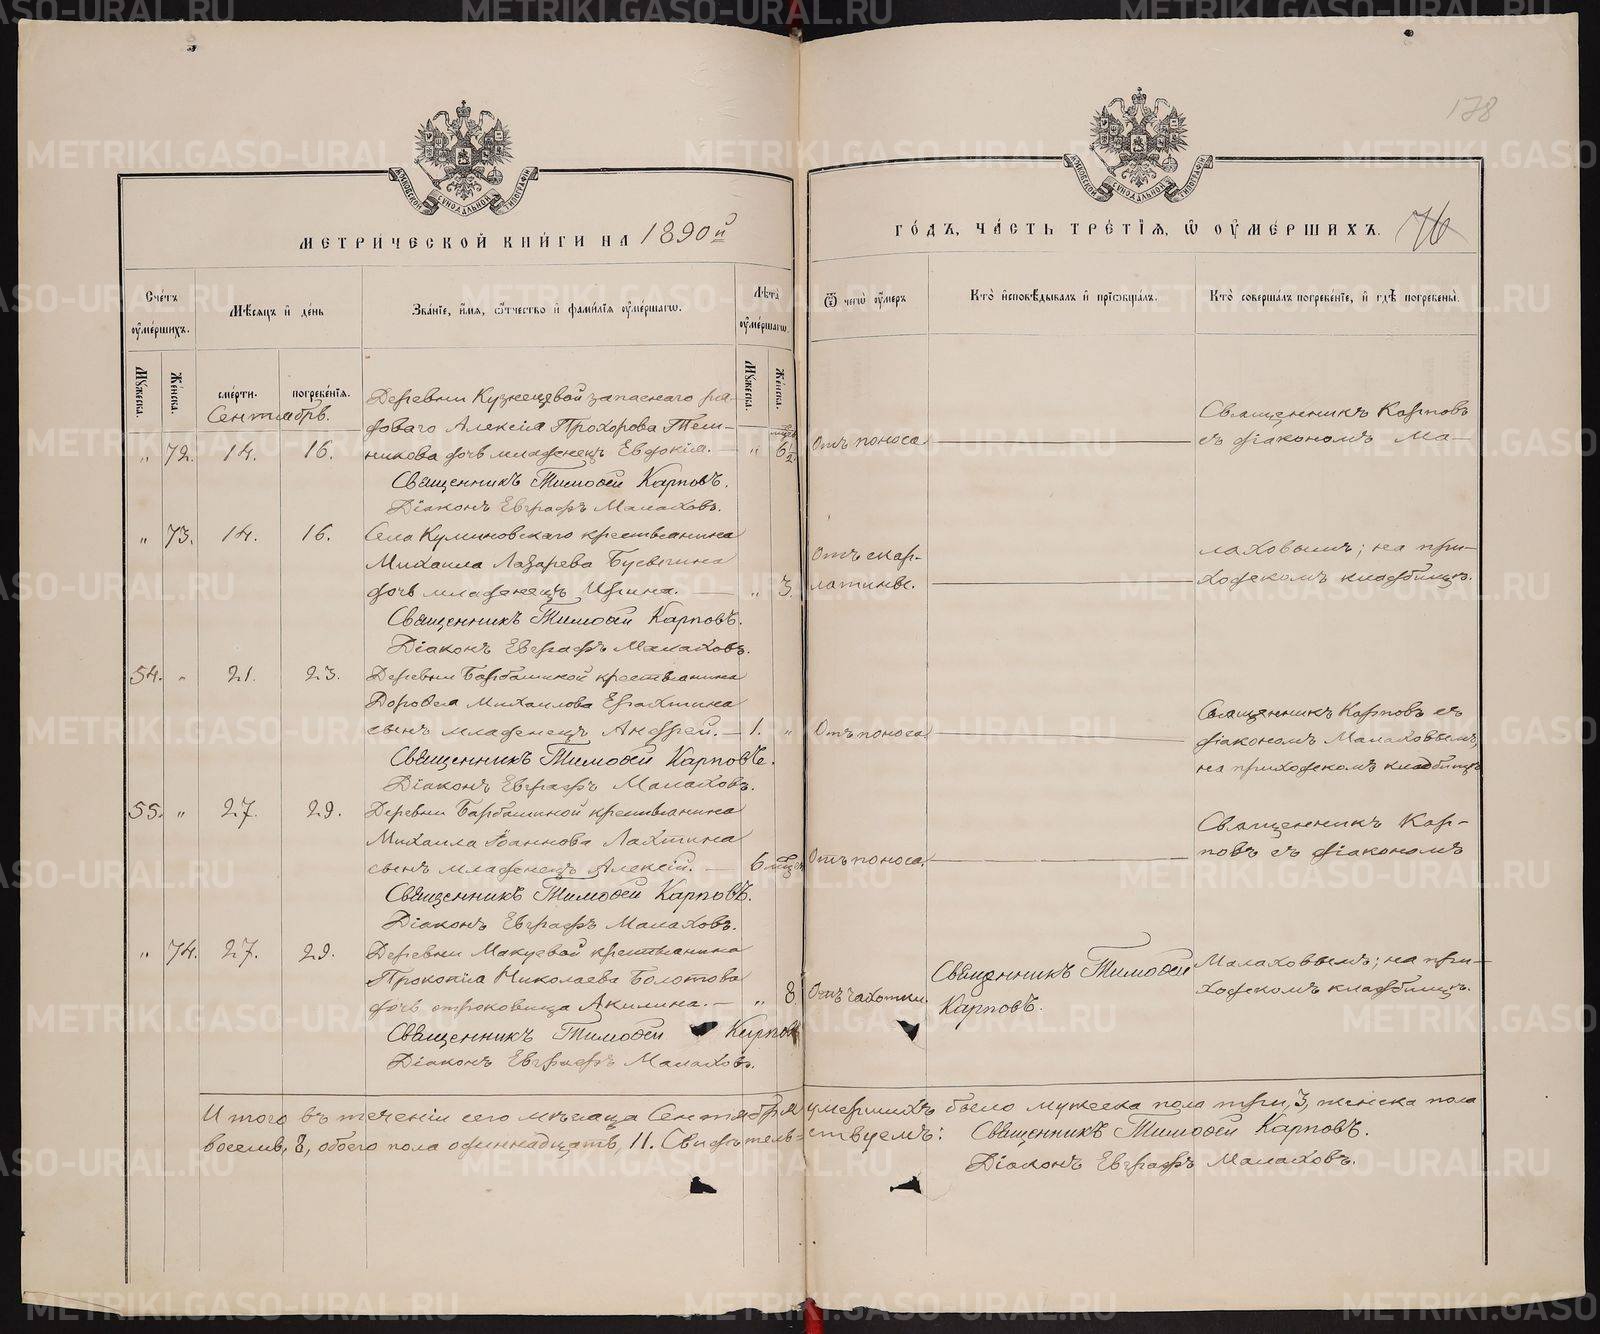 178
МЕТРИЧЕСКОЙ КНИГИ НА 1890й
ГОДЪ, ЧАСТЬ ТРЕТІЯ, Ѡ ОУМЕРШИХЪ. 76
Счетъ оумершихъ.
Мѣсяцъ и день
Званіе, имя, ѿчество и фамилія оумершагѡ.
Лѣта оумершагѡ.
Ѿ чегѡ оумеръ
Кто исповѣдывалъ и пріѡбщалъ.
Кто совершалъ погребеніе, и гдѣ погребены.
Мужеска.
Женска.
смерти.
погребенія.
Мужеска.
Женска.
Сентябрь.
Деревни Кузнецовой запаснаго ря-
доваго Алексія Прохорова
„ 72. 14. 16. дочь младенецъ Евдокія. — „ 6½ Отъ поноса
Священникъ Карповъ
съ діакономъ Ма-
Священникъ Тимофей Карповъ.
Діаконъ Евграфъ Малаховъ.
„ 73. 14. 16. Села Куминовскаго крестьянина
Михаила Лазарева Бусыгина
дочь младенецъ Ирина. — „ 3. Отъ скар-
латины.
лаховымъ; на при-
ходскомъ кладбищѣ.
Священникъ Тимофей Карповъ.
Діаконъ Евграфъ Малаховъ.
54. „ 21. 23. Деревни Барбашиной крестьянина
Дорофея Михаилова
сынъ младенецъ Андрей. — 1. „ Отъ поноса.
Священникъ Карповъ съ
діакономъ Малаховымъ,
на приходскомъ кладбищѣ
Священникъ Тимофей Карповъ.
Діаконъ Евграфъ Малаховъ.
55. „ 27. 29. Деревни Барбашиной крестьянина
Михаила Іоаннова Лахтина
сынъ младенецъ Алексій. — 6 мѣсяц. Отъ поноса
Священникъ Кар-
повъ съ діакономъ
Священникъ Тимофей Карповъ.
Діаконъ Евграфъ Малаховъ.
„ 74. 27. 29. Деревни Макуевой крестьянина
Прокопія Николаева Болотова
дочь отроковица Акилина. — „ 8. Отъ чахотки.
Священникъ Тимофей
Карповъ.
Малаховымъ; на при-
ходскомъ кладбищѣ.
Священникъ Тимофей Карповъ
Діаконъ Евграфъ Малаховъ.
Итого въ теченіи сего мѣсяца Сентября умершихъ было мужеска пола три, 3, женска пола
восемь, 8, обоего пола одиннадцать, 11. Свидѣтельствуемъ: Священникъ Тимофей Карповъ.
Діаконъ Евграфъ Малаховъ.
METRIKI.GASO-URAL.RU